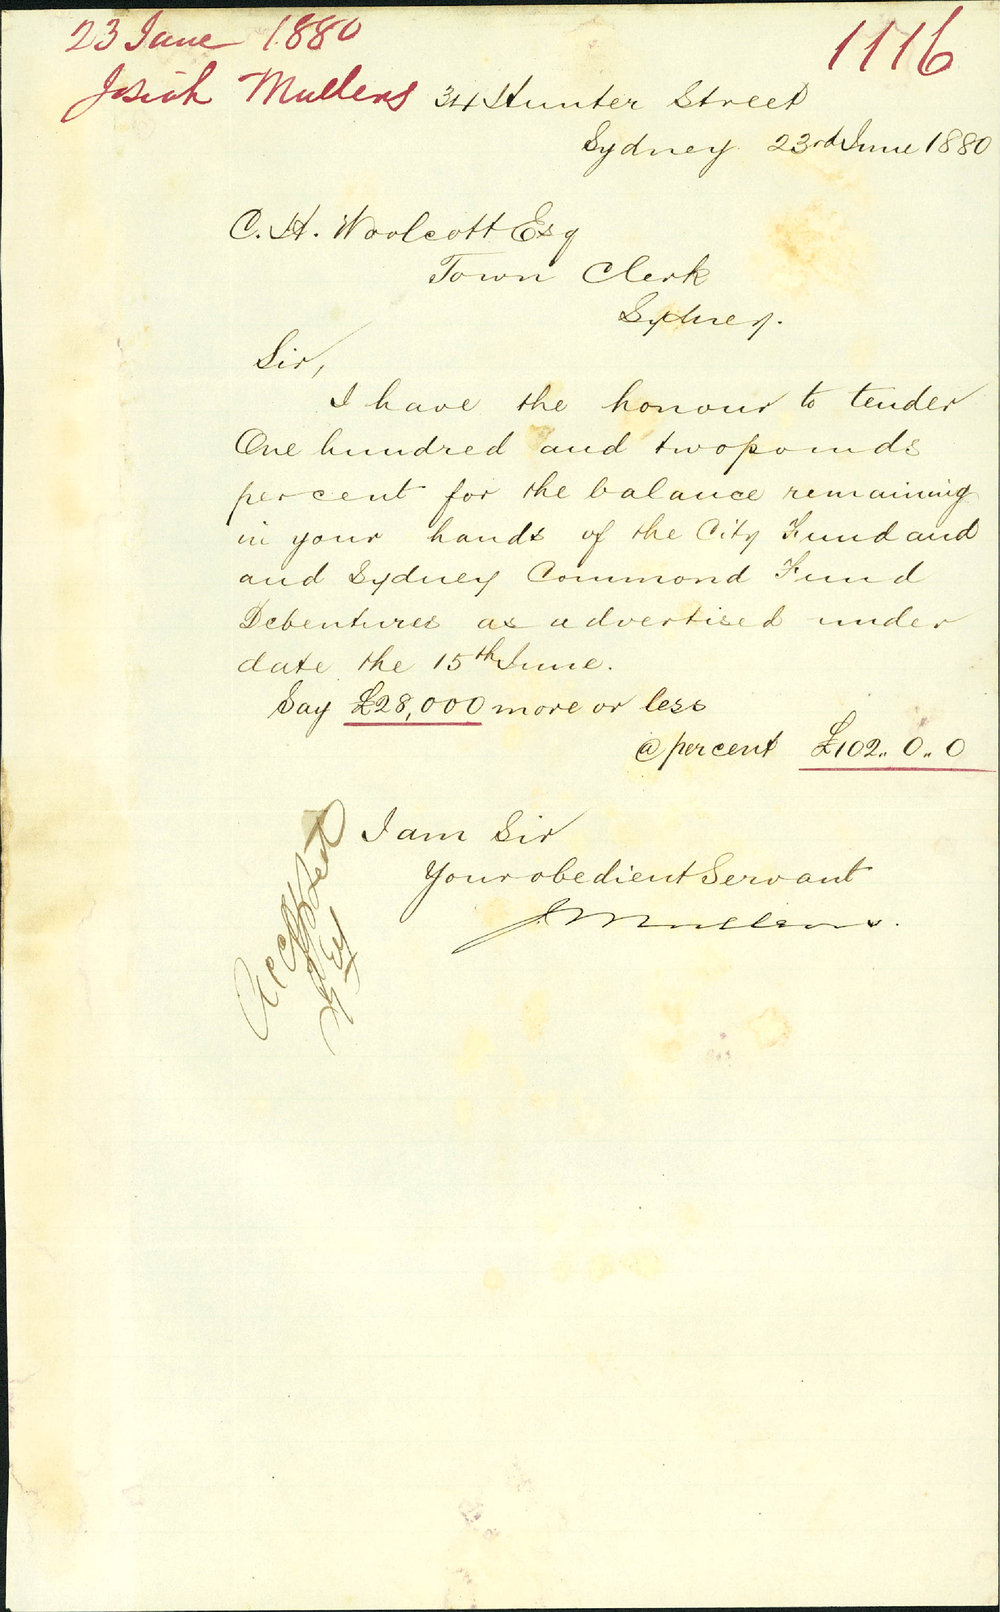 23 June 1880
1116
Josiah Mullens
34 Hunter Street
Sydney 23rd June 1880
C. H. Woolcott Esq
Town Clerk
Sydney.
Sir,
I have the honour to tender
One hundred and two pounds
per cent for the balance remaining
in your hands of the City Fund and
and Sydney Commond Fund
Debentures as advertised under
date the 15th June.
Say £28,000 more or less
@ per cent £102.. 0.. 0
I am Sir
Your obedient Servant
J Mullens.
Accepted